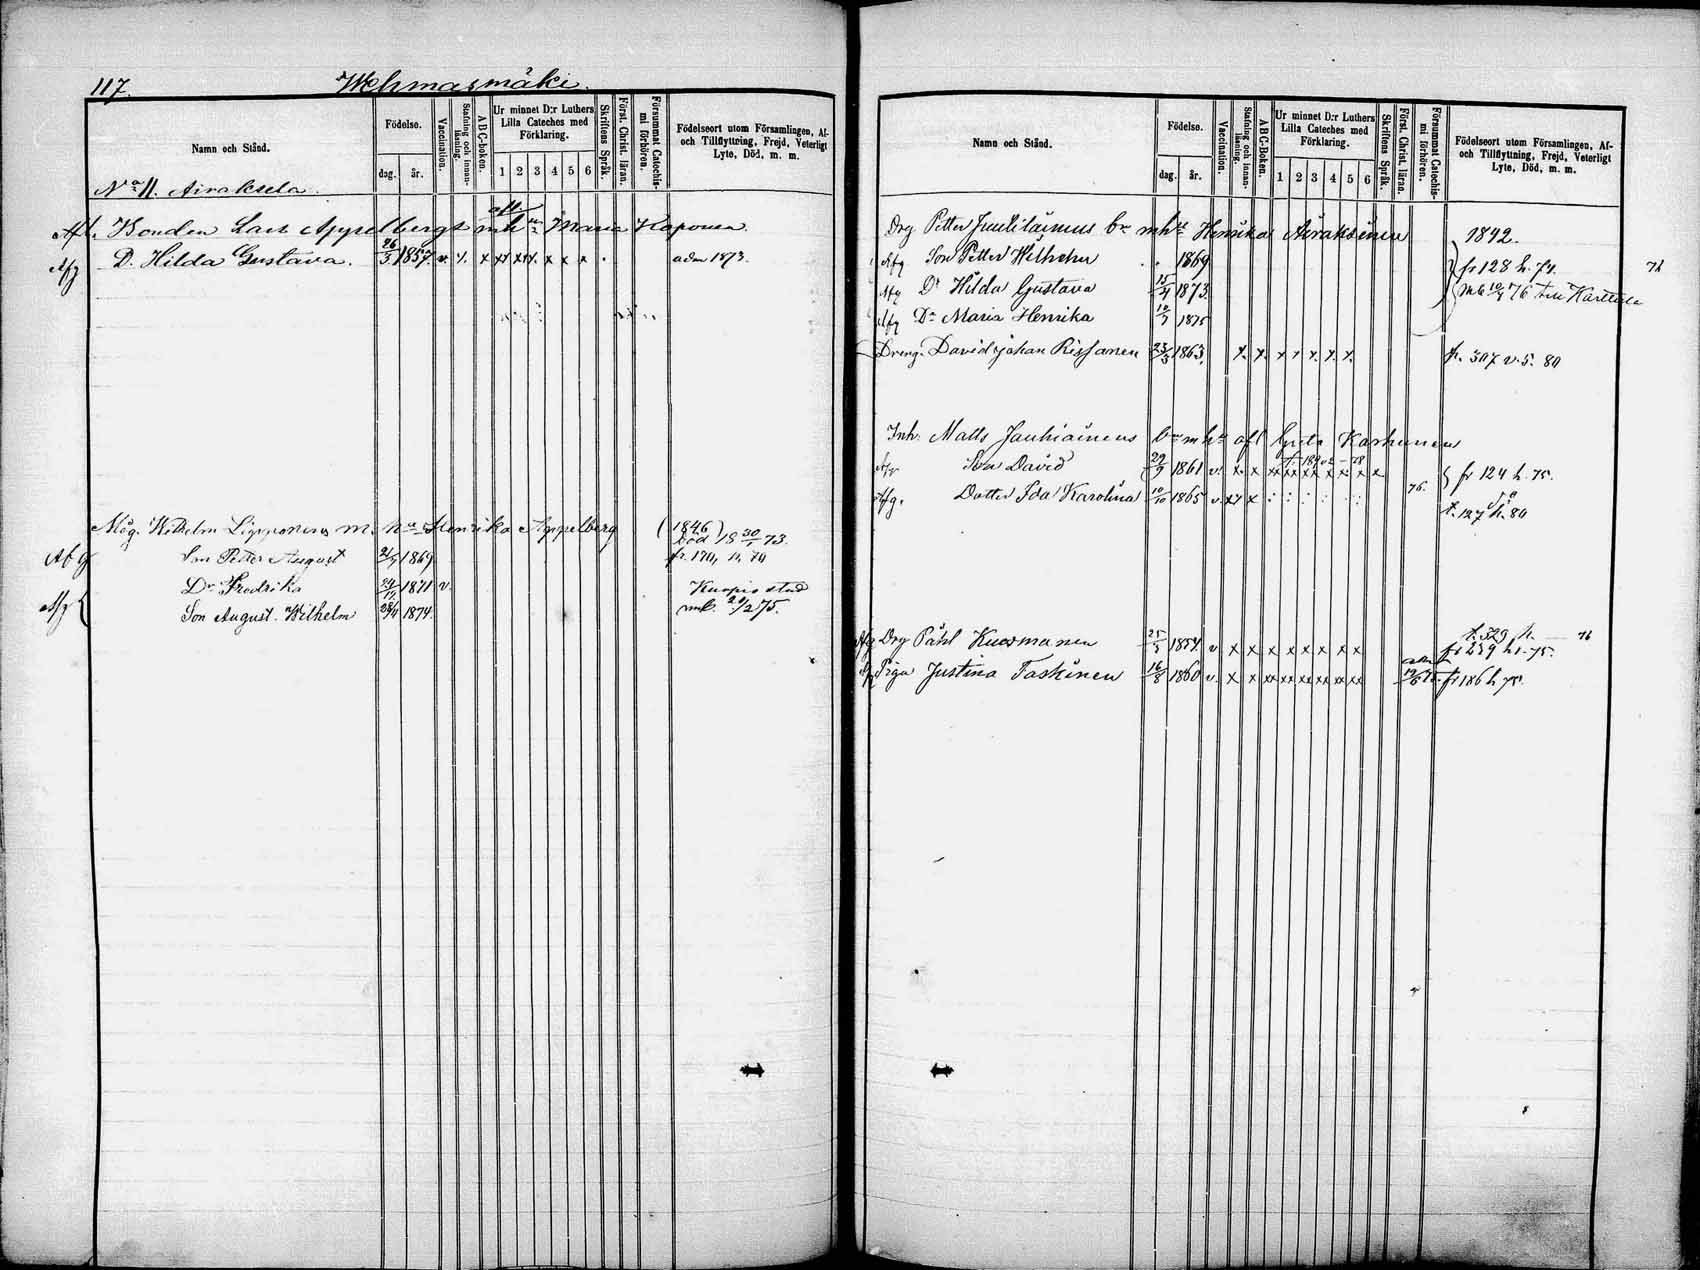 117. Wehmasmäki.
Namn och Stånd.
Födelse.
dag.
år.
Vaccination.
Stafning och innanläsning.
A B C-boken.
Ur minnet D:r Luthers Lilla Cateches med Förklaring.
1 2 3 4 5 6
Skriftens Språk.
Först. Christ. läran.
Försummat Catechismi förhören.
Födelseort utom Församlingen, Af- och Tillflyttning, Frejd, Veterligt Lyte, Död, m. m.
No 11. Airaksela.
Afl. Bonden Lars Appelbergs afl. mh Maria Kaponen.
Afg D. Hilda Gustava. 26/3 1857. v. x. x xx xx x. x x x . adm 1873.
Måg. Wilhelm Lipponens m. Henrika Appelberg (1846) Död 18 30/1 73.
Afg Son Petter August 21/7 1869 fr. 170, h. 70
Dr Fredrika 24/12 1871 v. Kuopio stad
Afg Son August Wilhelm 28/4 1874. mb. 20/2 75.
Namn och Stånd.
Födelse.
dag.
år.
Vaccination.
Stafning och innanläsning.
A B C-Boken.
Ur minnet D:r Luthers Lilla Cateches med Förklaring.
1 2 3 4 5 6
Skriftens Språk.
Först. Christ. läran.
Försummat Catechismi förhören.
Födelseort utom Församlingen, Af- och Tillflyttning, Frejd, Veterligt Lyte, Död, m. m.
Drg Petter Juutilainens br mhu Henrika Airaksinen 1842.
Afg Son Petter Wilhelm 1869 fr 128 h. 74.
Afg Dr Hilda Gustava 15/4 1873. mb 10/4 76 till Karttula
Afg Dr Maria Henrika 10/7 1875
Dreng. David Johan Rissanen 23/3 1863. x. x. x x x. x. x. fr. 307 v. 5. 80
Inh: Matts Jauhiainens mhu afl Greta Karhunen
Afg Son David 29/9 1861 v. x. x xx xx xx x x x x fr 124 h. 75.
Afg. Dotter Ida Karolina 10/10 1865 v. xx x 76. t. 127 h. 80
t. 329 h. 76
Afg Drg Påhl Kuosmanen 25/3 1854. v x x x x x x x x fr 239 h 1.75.
Afg Piga Justina Taskinen 16/8 1860 v. x x xx xx xx xx xx xx fr 186 h 75.